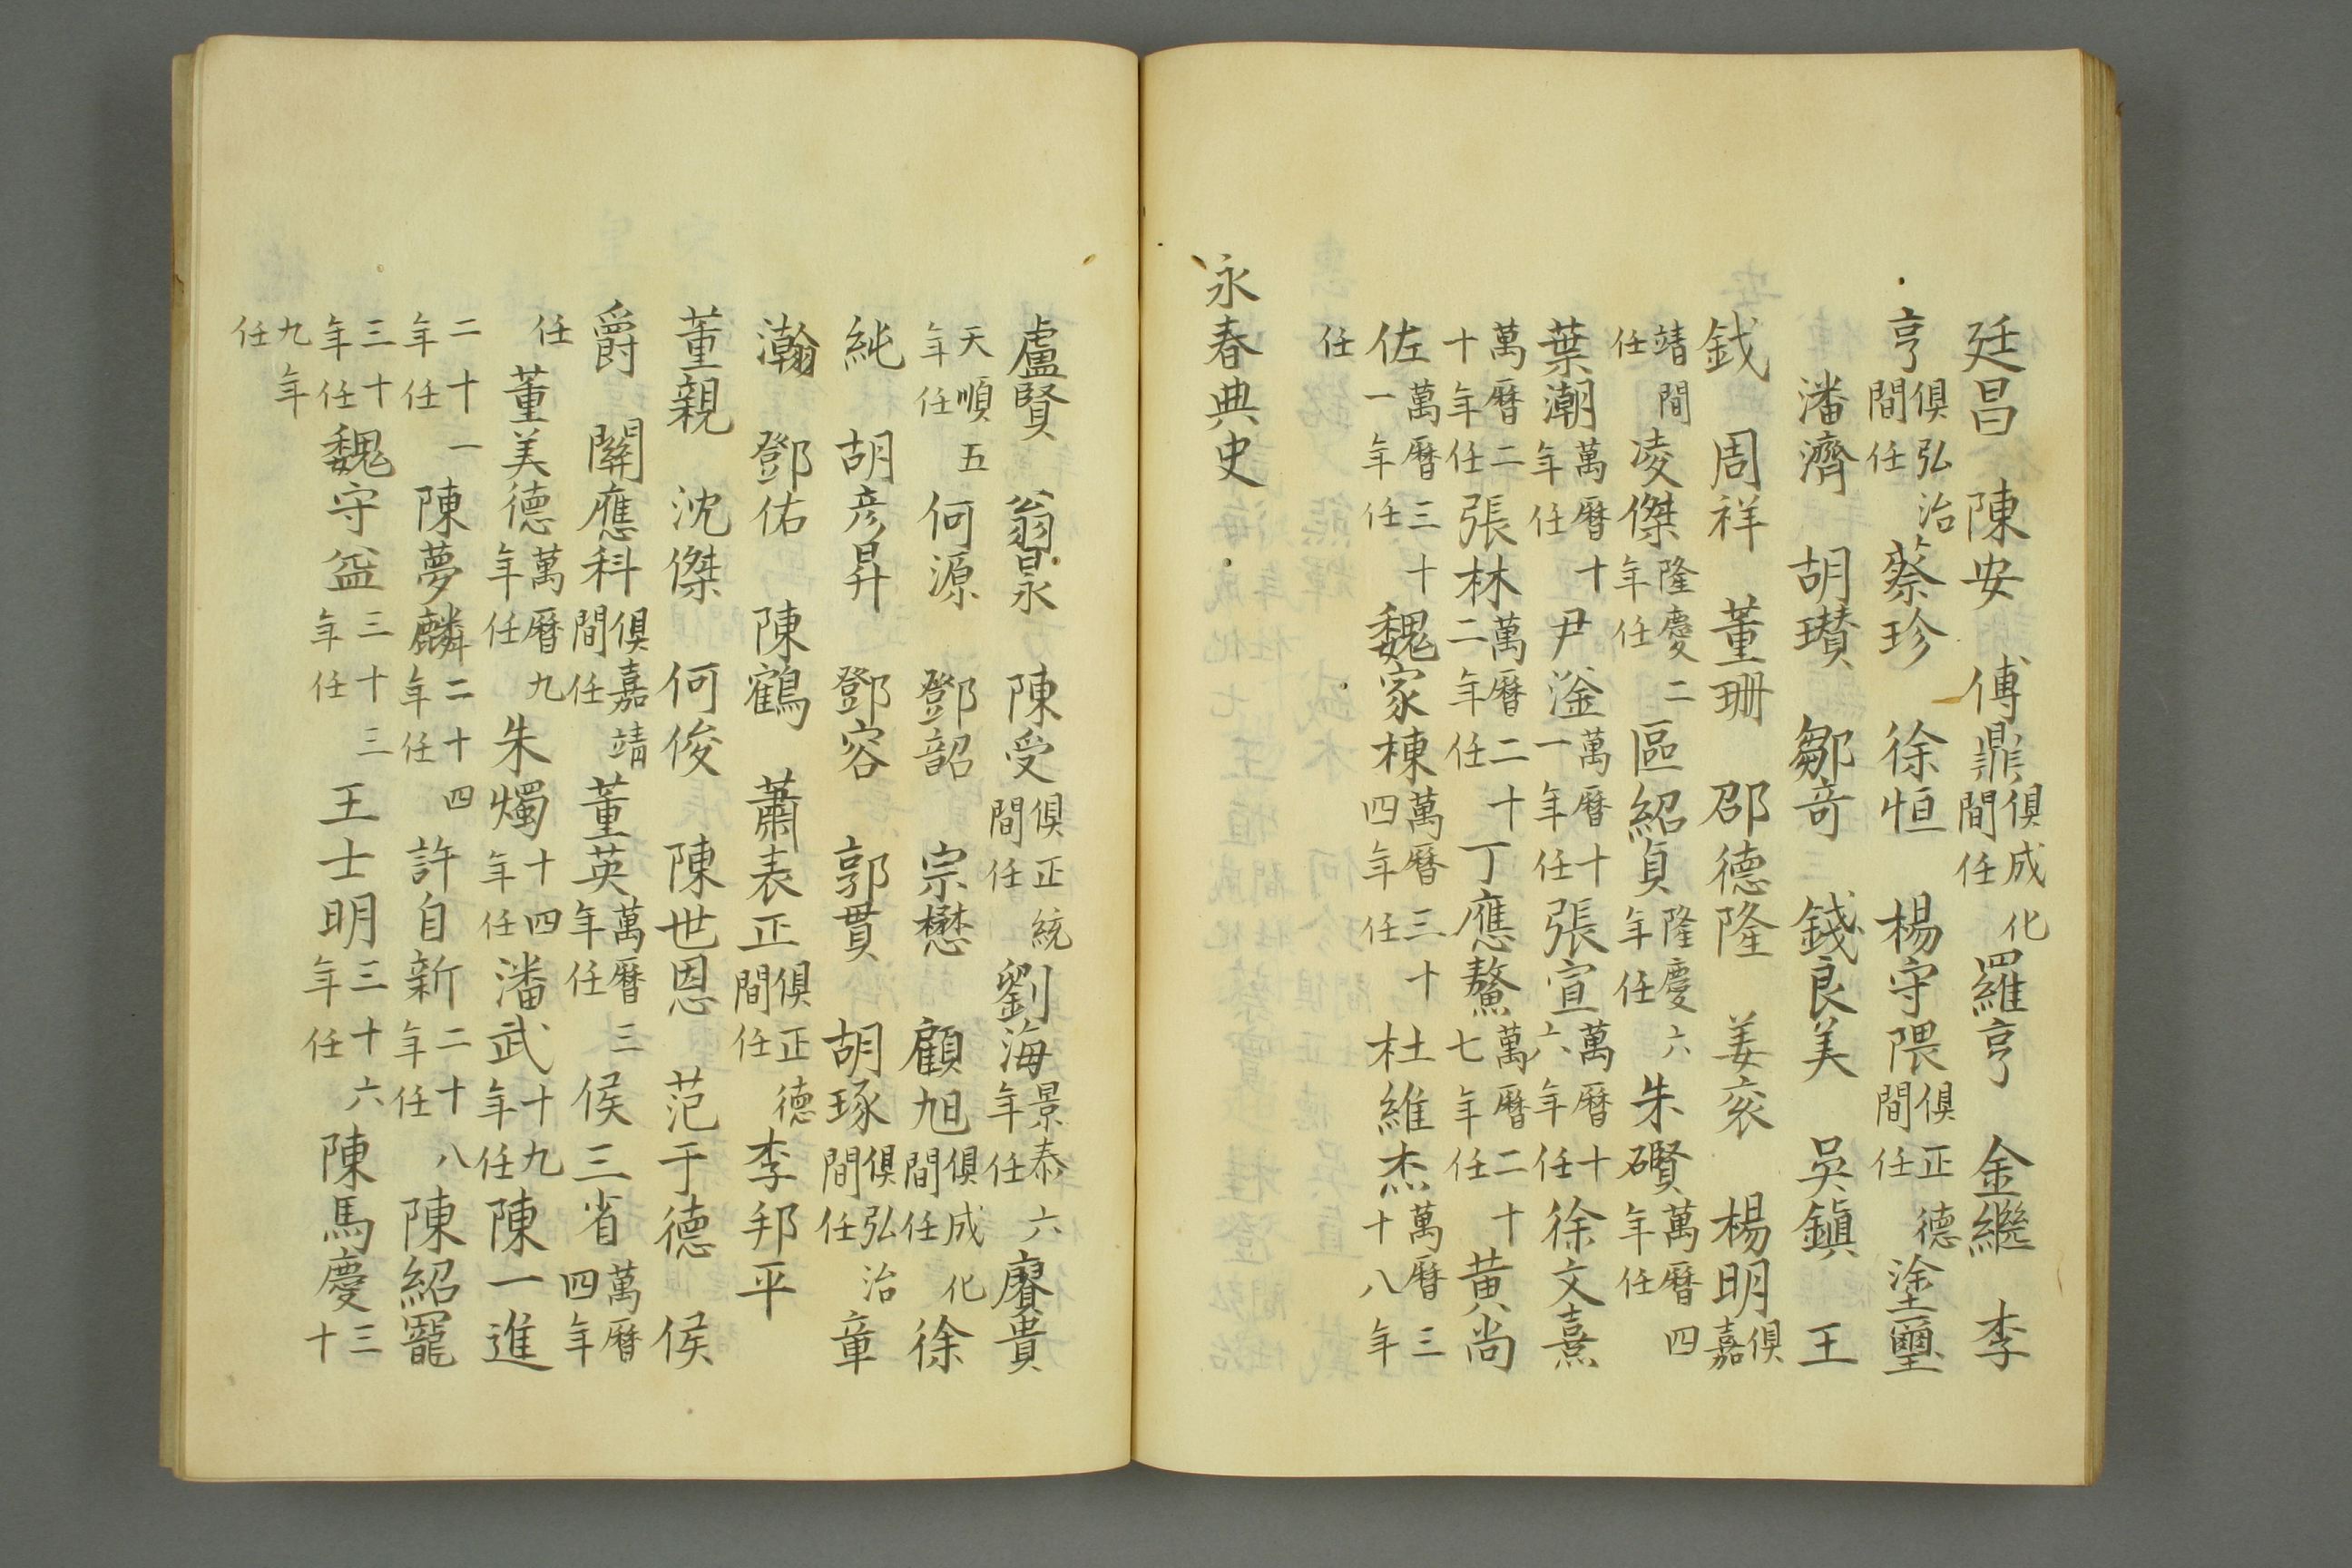 廷昌　陳安　傅鼎俱成化間任羅亨　金繼　李
亨俱弘治間任蔡珍　徐恒　楊守隈俱正德間任塗璽
潘濟　胡瓚　鄒竒　錢良美　吳鎮　王
鉞　周祥　董珊　邵德隆　姜衮　楊明俱嘉
靖間任凌傑隆慶二年任區紹貞隆慶六年任朱礥萬曆四年任
葉潮萬曆十年任尹淦萬曆十一年任張宣萬曆十六年任徐文熹
萬曆二十年任張林萬曆二十二年任丁應鰲萬曆二十七年任黃尚
佐萬曆三十一年任魏家棟萬曆三十四年任杜維杰萬曆三十八年
任
永春典史
盧賢　翁昻　陳受俱正統間任劉海景泰六年任廖貴
天順五年任何源　鄧韶　宗懋　顧旭俱成化間任徐
純　胡彦昇　鄧容　郭貫　胡琢俱弘治間任章
瀚　鄧佑　陳鶴　蕭表正俱正德間任李邦平
董親　沈傑　何俊　陳世恩　范于德　侯
爵　關應科俱嘉靖間任董英萬曆三年任侯三省萬曆四年
任董美德萬曆九年任朱燭十四年任潘武十九年任陳一進
二十一年任陳夢麟二十四年任許自新二十八年任陳紹寵
三十年任魏守盆三十三年任王士明三十六年任陳馬慶三十
九年任